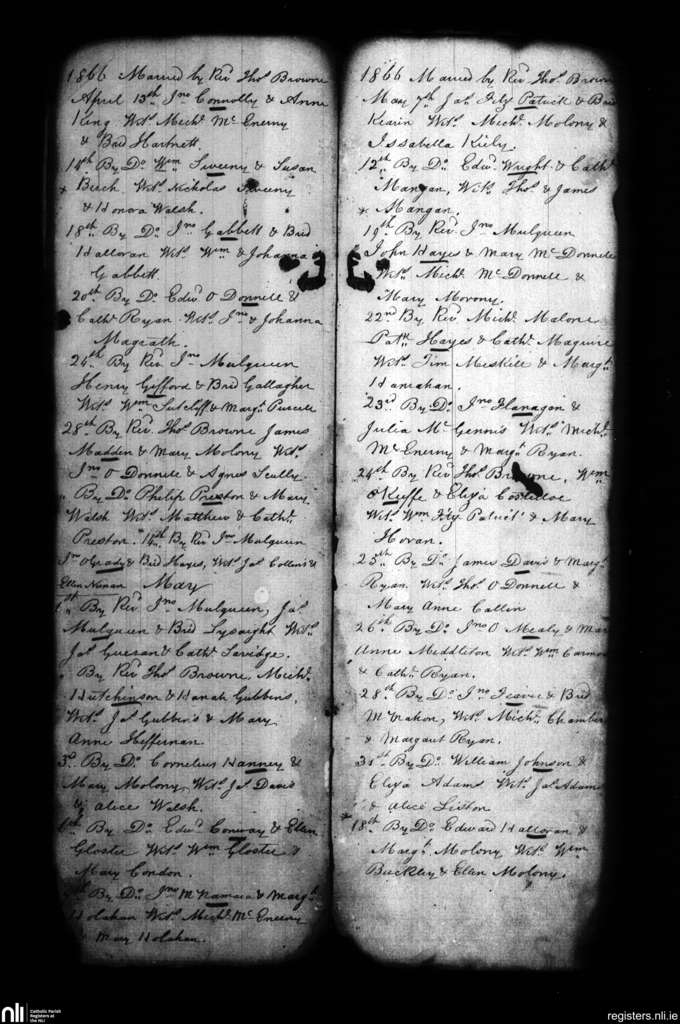 1866 Married by Revd Thos Browne
April 13th Jno Connolly & Anne
King Wits Michl McEnerny
& Brid Hartnett.
14th By Do Wm Sweeny & Susan
x Beech. Wits Nicholas Sweeny
& Honora Walsh.
18th By Do Jno Gabbett & Brid
Halloran Wits Wm & Johanna
Gabbett.
20th By Do Edwd O Donnell &
Cathe Ryan. Wits Jno & Johanna
Magrath.
24th By Revd Jno Mulqueen
Henry Gifford & Brid Gallagher
Wits Wm Sutcliff & Margt Purcell
28th By Revd Thos Browne James
Madden & Mary Molony Wits
Jno O Donnell & Agnes Scully
" By Do Philip Preston & Mary
Walsh Wits Matthew & Cathe
Preston. By Revd Jno Mulqueen
Jno OGrady & Brid Hayes, Wits Jas Collins &
Ellen Honan May
1st By Revd Jno Mulqueen, Jas
Mulqueen & Brid Lysaight Wits
Jas & Cathe
" By Revd Thos Browne Michl
Hutchinson & Hanah Gubbins,
Wits Jas Gubbins & Mary
Anne Heffernan.
3d By Do Cornelius Hanney &
Mary Molony, Wits Jas Davis
& Alice Walsh.
6th By Do Edwd Conway & Ellen
Gloster Wits Wm Gloster &
Mary Condon.
By Do Jno McNamara & Margt
Holahan Wits Michl McEnerny
Mary Holahan.
1866 Married by Revd Thos Browne
May 7th Jas Fitz Patrick & Brid
Kearin Wits Michl Molony &
Issabella Kiely.
12th By Do Edwd Wright & Cathe
Mangan, Wits Thos & James
x Mangan.
19th By Revd Jno Mulqueen
John Hayes & Mary McDonnell
Wits Michl McDonnell &
Mary Moroney.
22nd By Revd Michl Malone
Patk Hayes & Cathe Maguire
Wits Tim Meskill & Margt
Hanrahan.
23rd By Do Jno Flanagan &
Julia McGennis Wits Michl
McEnerny & Margt Ryan.
24th By Revd Thos Browne, Wm
OKeeffe & Eliza Costelloe
Wits Wm Fitz Patrick & Mary
Horan.
25th By Do James Davis & Margt
Ryan Wits Thos O Donnell &
Mary Anne Callin
26th By Do Jno O Mealy & Mary
Anne Middleton Wits Wm
& Cathe Ryan.
28th By Do Jno & Brid
McMahon, Wits Michl Chambers
& Margaret Ryan.
31st By Do William Johnson &
Eliza Adams Wits Jas Adams
& Alice Liston
x 18th By Do Edward Halloran &
Margt Molony Wits Wm
Buckley & Ellen Molony.
nli
Catholic Parish
Registers at
the NLI
registers.nli.ie